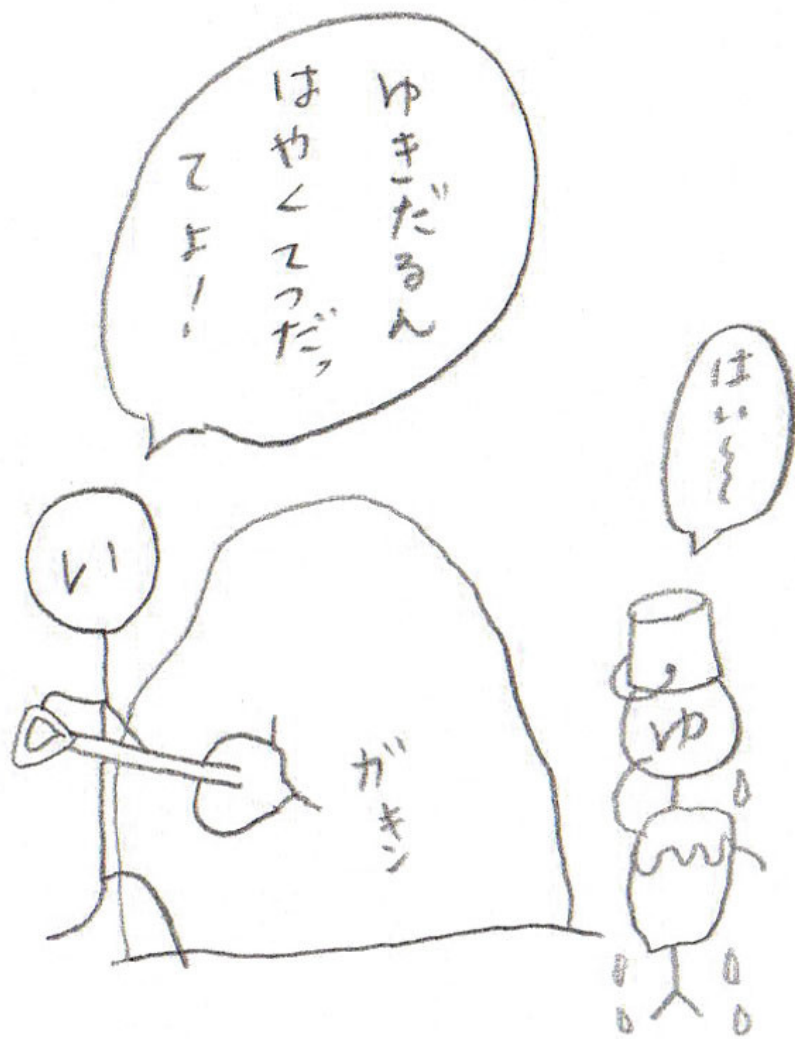 ゆきだるん
はやくてつだっ
てよ！
はい～
い
ガキン
ゆ